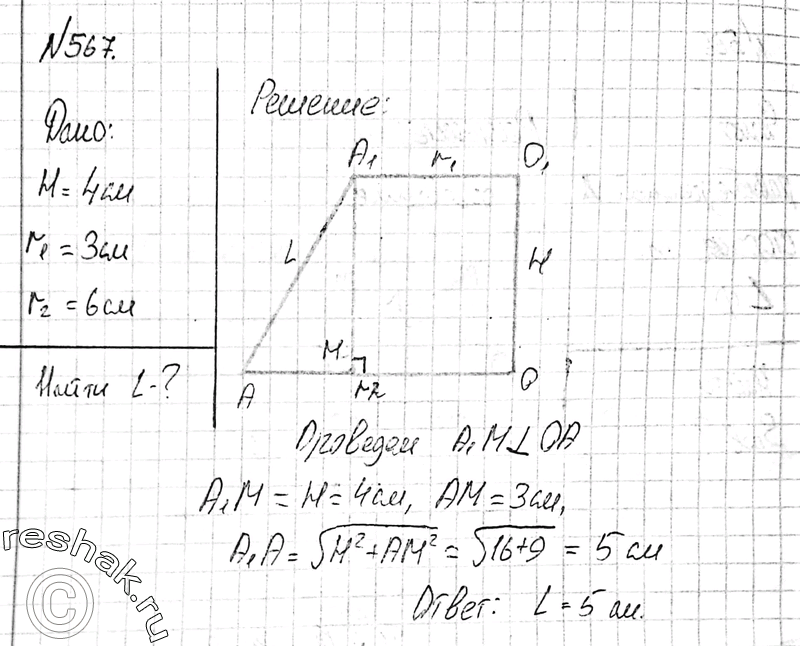 N567.
Дано:
H = 4 см
r₁ = 3 см
r₂ = 6 см
Найти L - ?
Решение:
A₁ r₁ O₁
L H
M
A r₂ O
Проведем A₁M ⊥ OA
A₁M = H = 4 см, AM = 3 см,
A₁A = √(H² + AM²) = √(16+9) = 5 см
Ответ: L = 5 см.
reshak.ru
©